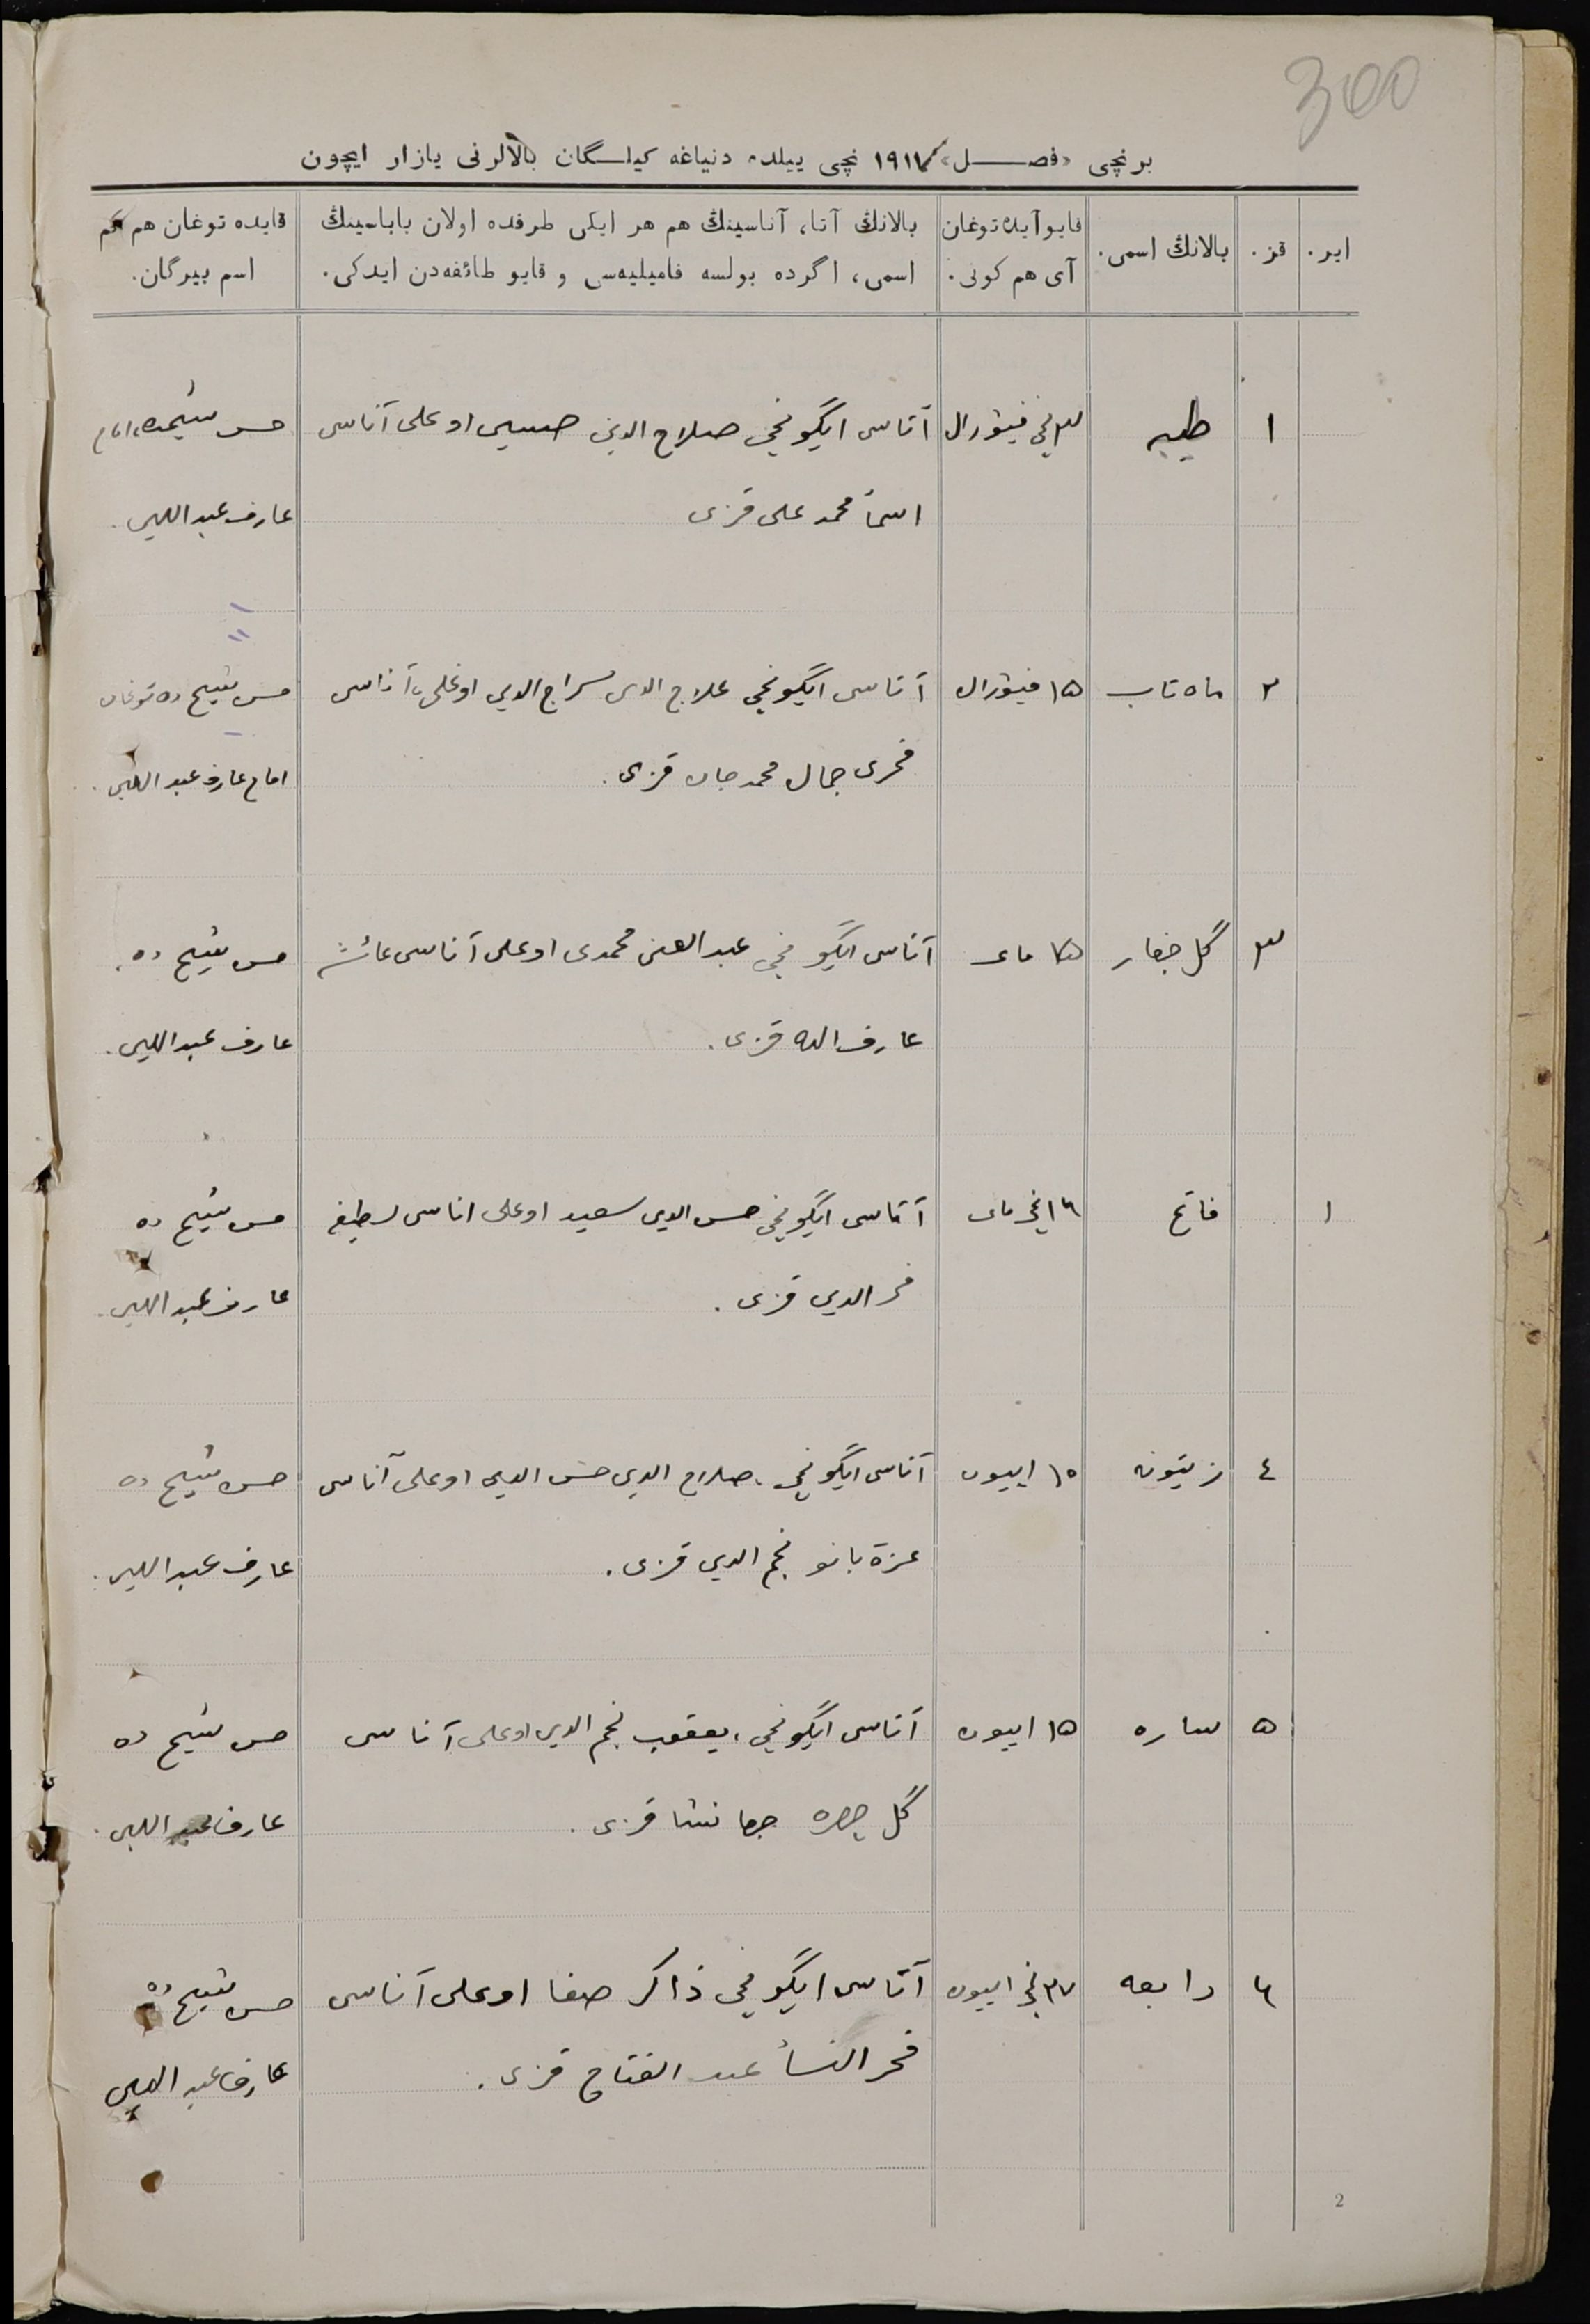 300
برنچی «فصل» ١٩١٧ نچی ییلده دنیاغه کیلگان بالالرنی یازار ایچون
ایر.
قز.
بالانڭ اسمی.
قایو آیده توغان
آی هم کونی.
بالانڭ آتا، آناسینڭ هم هر ایکی طرفده اولان باباسینڭ
اسمی، اگرده بولسه فامیلیه‌سی و قایو طائفه‌دن ایدکی.
قایده توغان هم کم
اسم بیرگان.
١ طیبه ٣ نچی فیورال آتاسی ایگونچی صلاح الدین حسین اوغلی آناسی
اسمأ محمد علی قزی
عارف عبد اللهی.
٢ ماه تاب ١٥ فیورال آتاسی ایگونچی علاج الدین سراج الدین اوغلی، آناسی
فخری جمال محمد جان قزی.
امام عارف عبد اللهی.
٣ گل جفار ماى آتاسی ایگونچی عبد الغنی محمدی اوغلی آناسی عائشه
عارف الله قزی.
عارف عبد اللهی.
١ فاتح ١٦ نچی مای آتاسی ایگونچی حسن الدین سعید اوغلی اناسی لطیفه
فخر الدین قزی.
عارف عبد اللهی.
٤ زیتونه ١٥ اییون آتاسی ایگونچی صلاح الدین حسن الدین اوغلی آناسی
عزة بانو نجم الدین قزی.
عارف عبد اللهی.
٥ ساره ١٥ اییون آتاسی ایگونچی، یعقوب نجم الدین اوغلی آناسی
گل چهره جهانشا قزی.
عارف عبد اللهی.
٦ رابعه ٢٧ نچی اییون آتاسی ایگونچی ذاکر صفا اوغلی آناسی
فخر النسأ عبد الفتاح قزی.
عارف عبد اللهی
2